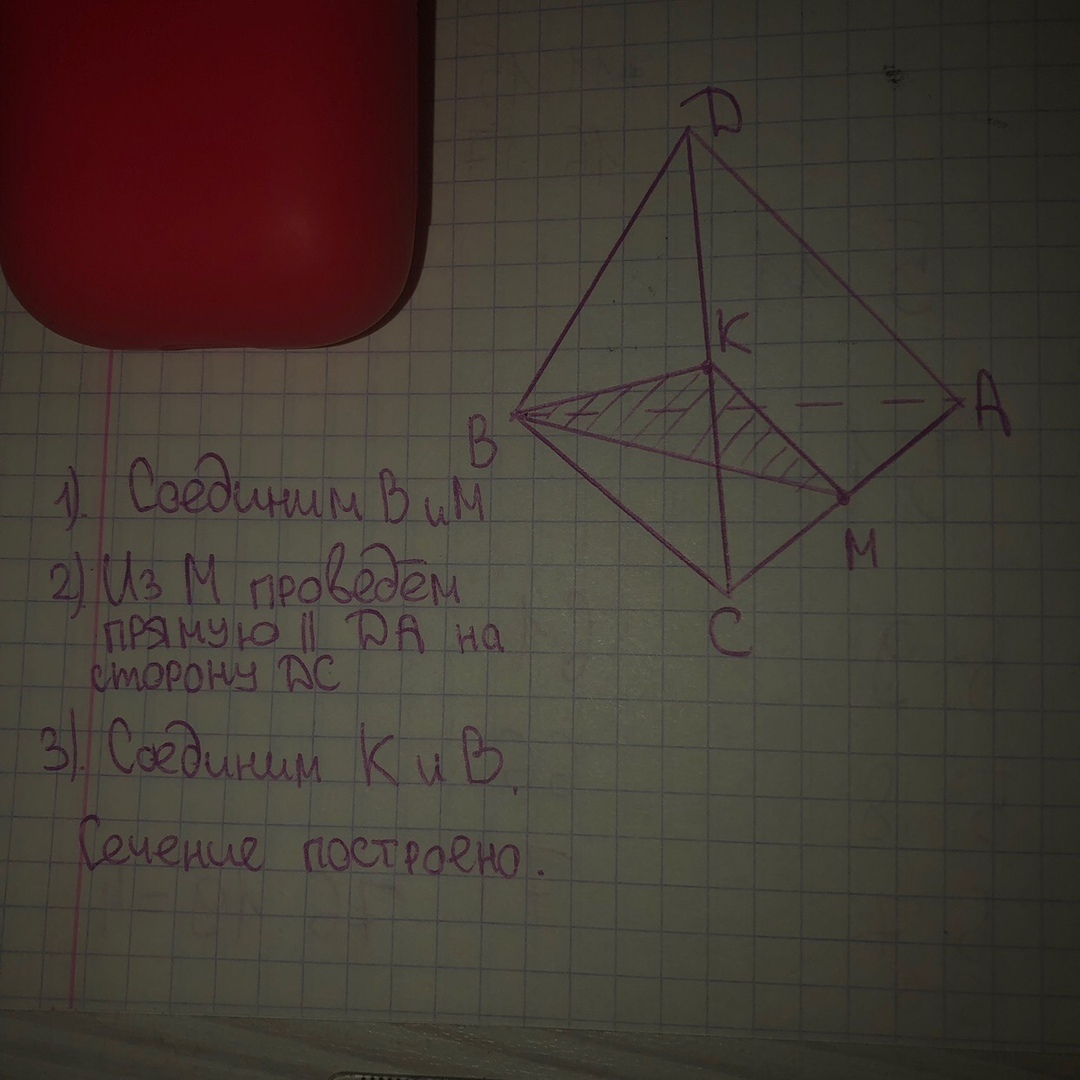 D
K
A
B
M
C
1). Соединим B и M
2) Из M проведём
прямую || DA на
сторону DC
3). Соединим K и B.
Сечение построено.